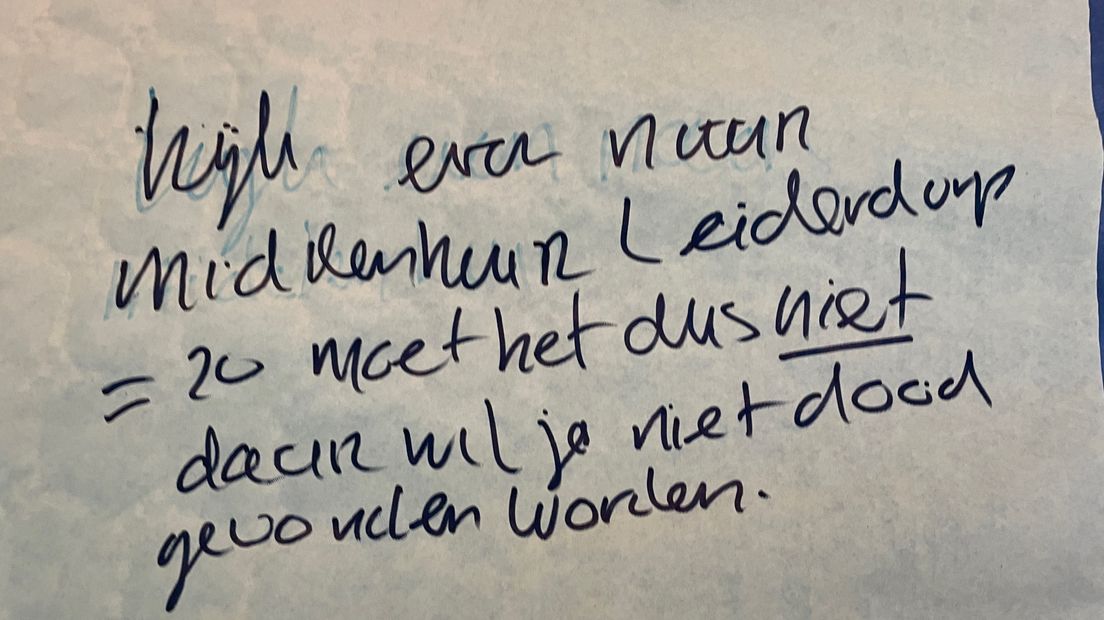 kijk even naar
middenhuur Leiderdorp
= zo moet het dus niet
daar wil je niet dood
gevonden worden.